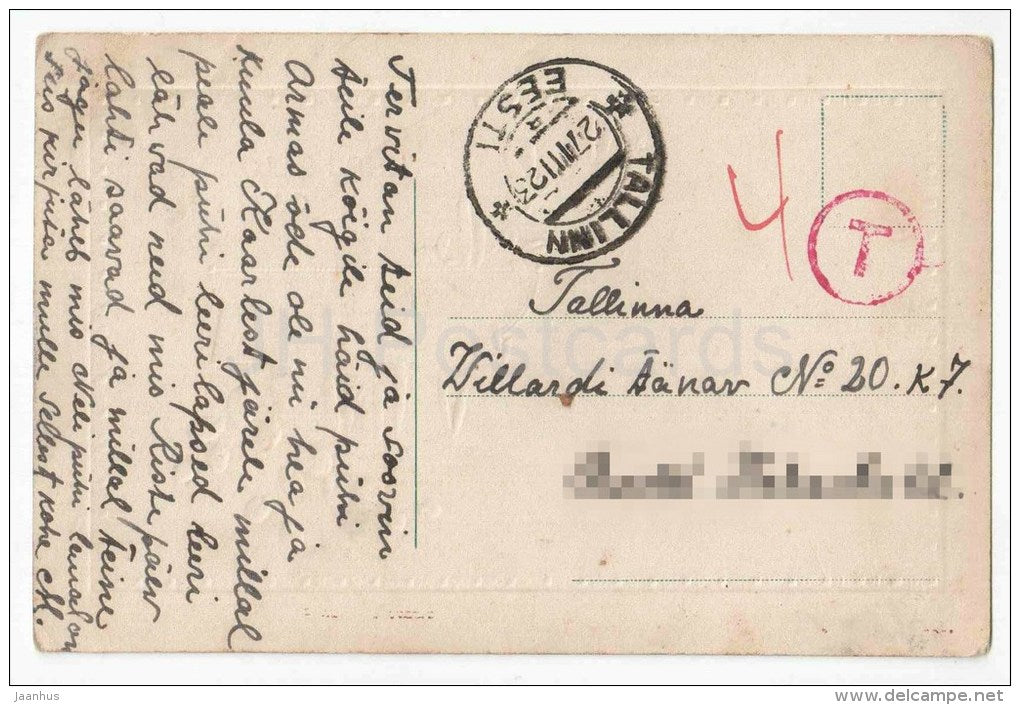 Tervitan teid ja soovin
teile kõigile häid pühi
Armas õde ole nii hea ja
kuula Kaarlest järele millal
peale pühi leerilapsed leeri
lähvad need mis Ristipäew
lahti saavad ja millal teine
jagu läheb mis Neli pühi lauad on
siis kirjuta mulle sellest kohe M.
TALLINN
EESTI
27 III 23
4
T
Tallinna
Willardi tänav No 20. K 7.
JH Postcards
jaanhus
www.delcampe.net